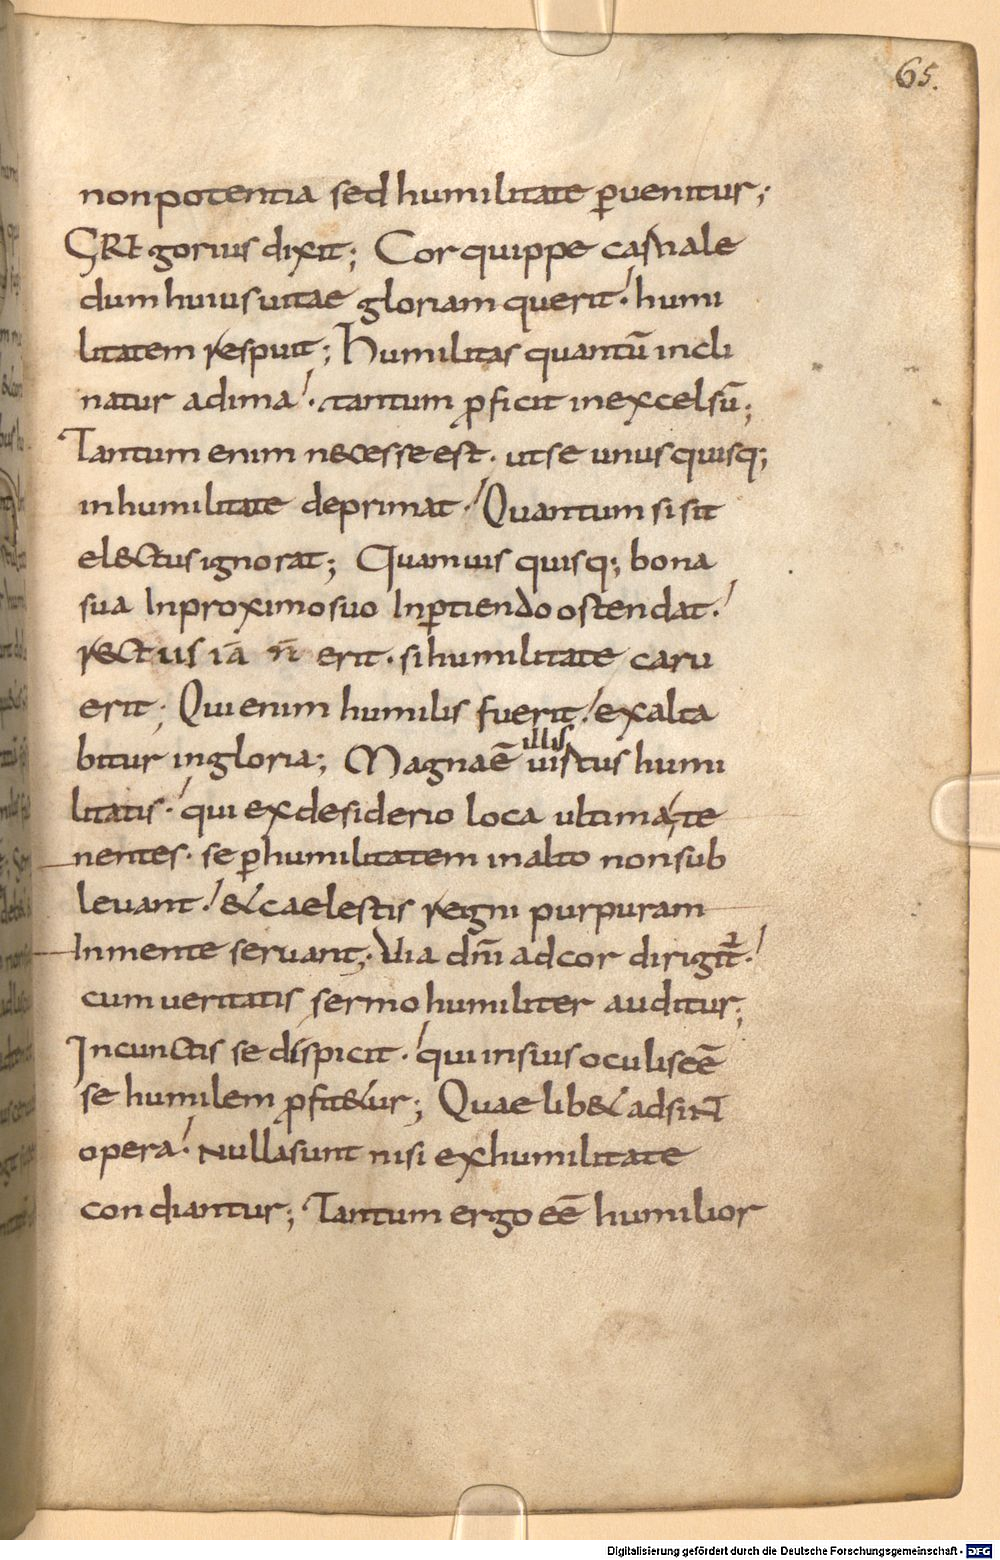 65.
non potentia sed humilitate ꝑuenitur;
GREgorius dixit; Cor quippe carnale
dum huius uitae gloriam querit. humi
litatem respuit; Humilitas quantū incli
natur ad ima. tantum ꝓficit in excelsū;
Tantum enim n&cesse est. ut se unusquisq;
in humilitate deprimat. Quantum si sit
el&ctus ignorat; Quamuis quisq; bona
sua In proximo suo Inꝑtiendo ostendat.
r&ctus iā n̄ erit. si humilitate caru
erit; Qui enim humilis fuerit. exalta
bitur in gloria; Magna ē illis uirtus humi
litatis. qui ex desiderio loca ultima te
nentes. se ꝑ humilitatem in alto non sub
leuant. & caelestis regni purpuram
In mente seruant; Uia dn̄i ad cor dirigit̄.
cum ueritatis sermo humiliter auditur;
In cunctis se dispicit. qui in suis oculis eē
se humilem ꝓfit&ur; Quae lib& adsint
opera. Nulla sunt nisi ex humilitate
condiantur; Tantum ergo eē humilior
Digitalisierung gefördert durch die Deutsche Forschungsgemeinschaft - DFG